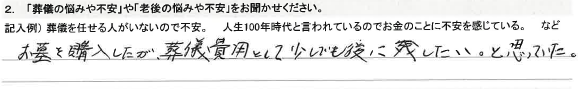 2. 「葬儀の悩みや不安」や「老後の悩みや不安」をお聞かせください。
記入例）葬儀を任せる人がいないので不安。 人生100年時代と言われているのでお金のことに不安を感じている。 など
お墓を購入したが、葬儀費用として少しでも後に残したい。と思っていた。